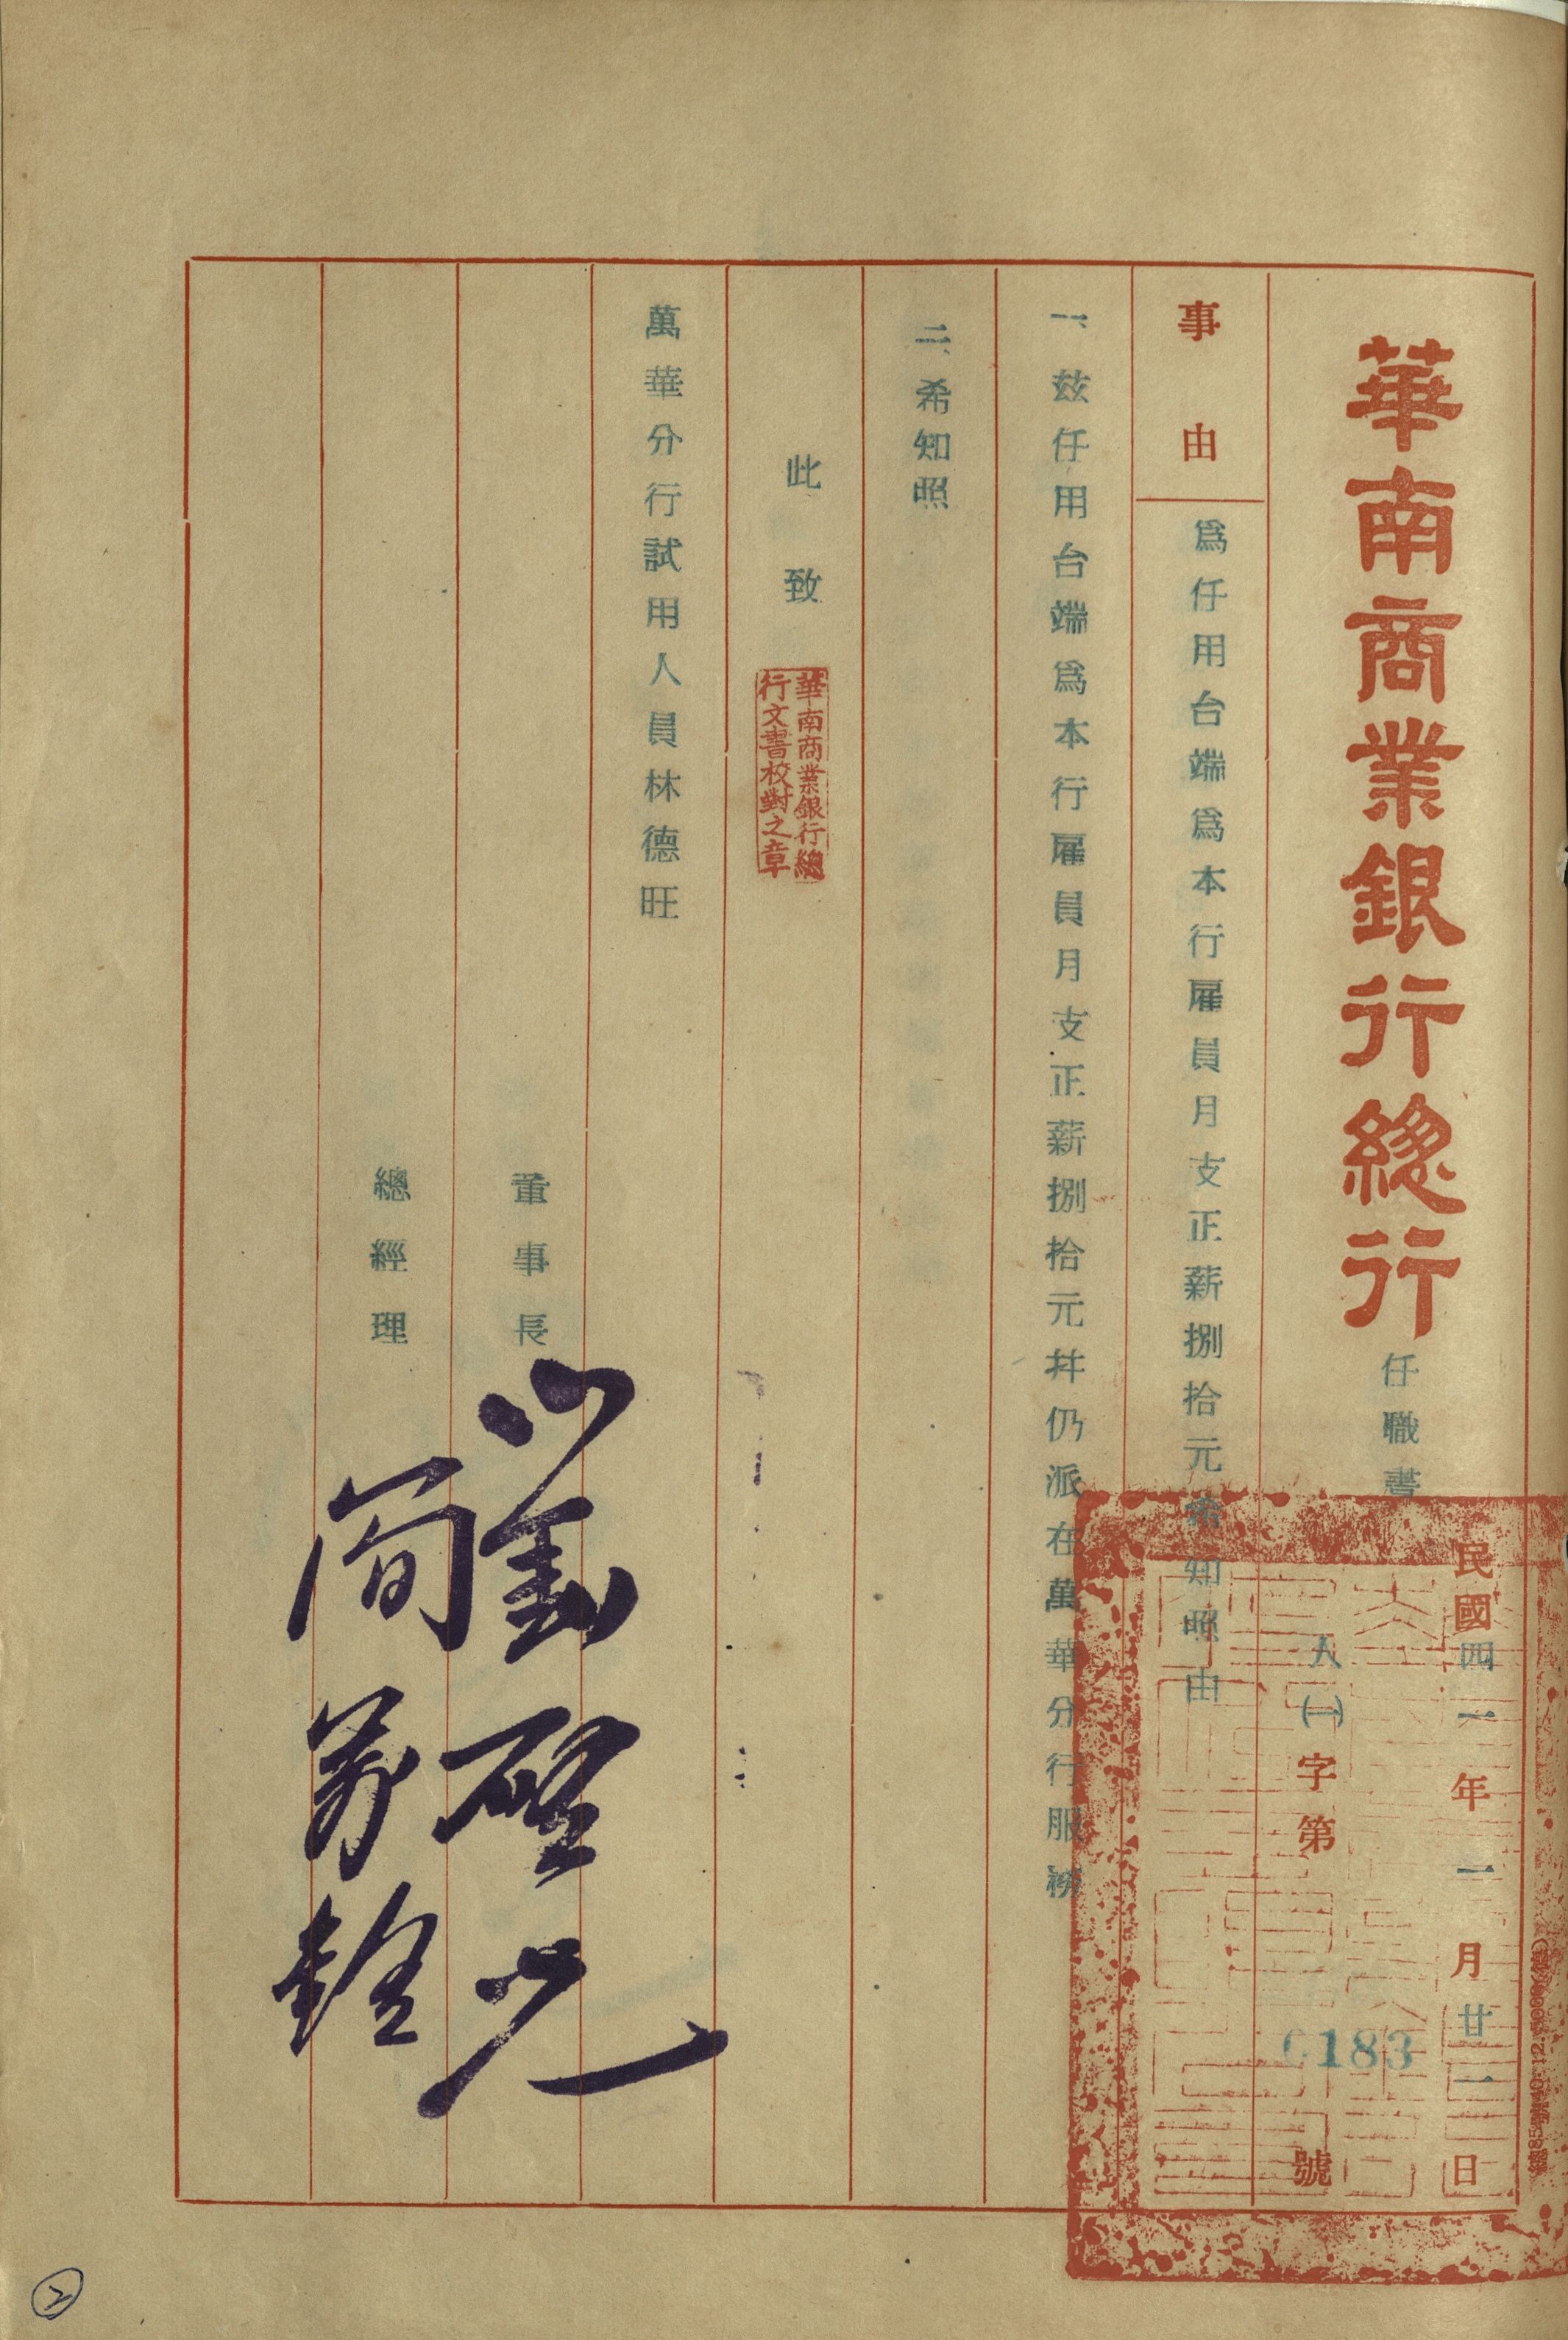 華南商業銀行總行
任職書
民國四一年一月廿一日
人㈠字第0183號
事由
爲任用台端爲本行雇員月支正薪捌拾元希知照由
一、茲任用台端爲本行雇員月支正薪捌拾元幷仍派在萬華分行服務
二、希知照
此致
華南商業銀行總
行文書校對之章
萬華分行試用人員林德旺
董事長
劉啓光
總經理
2